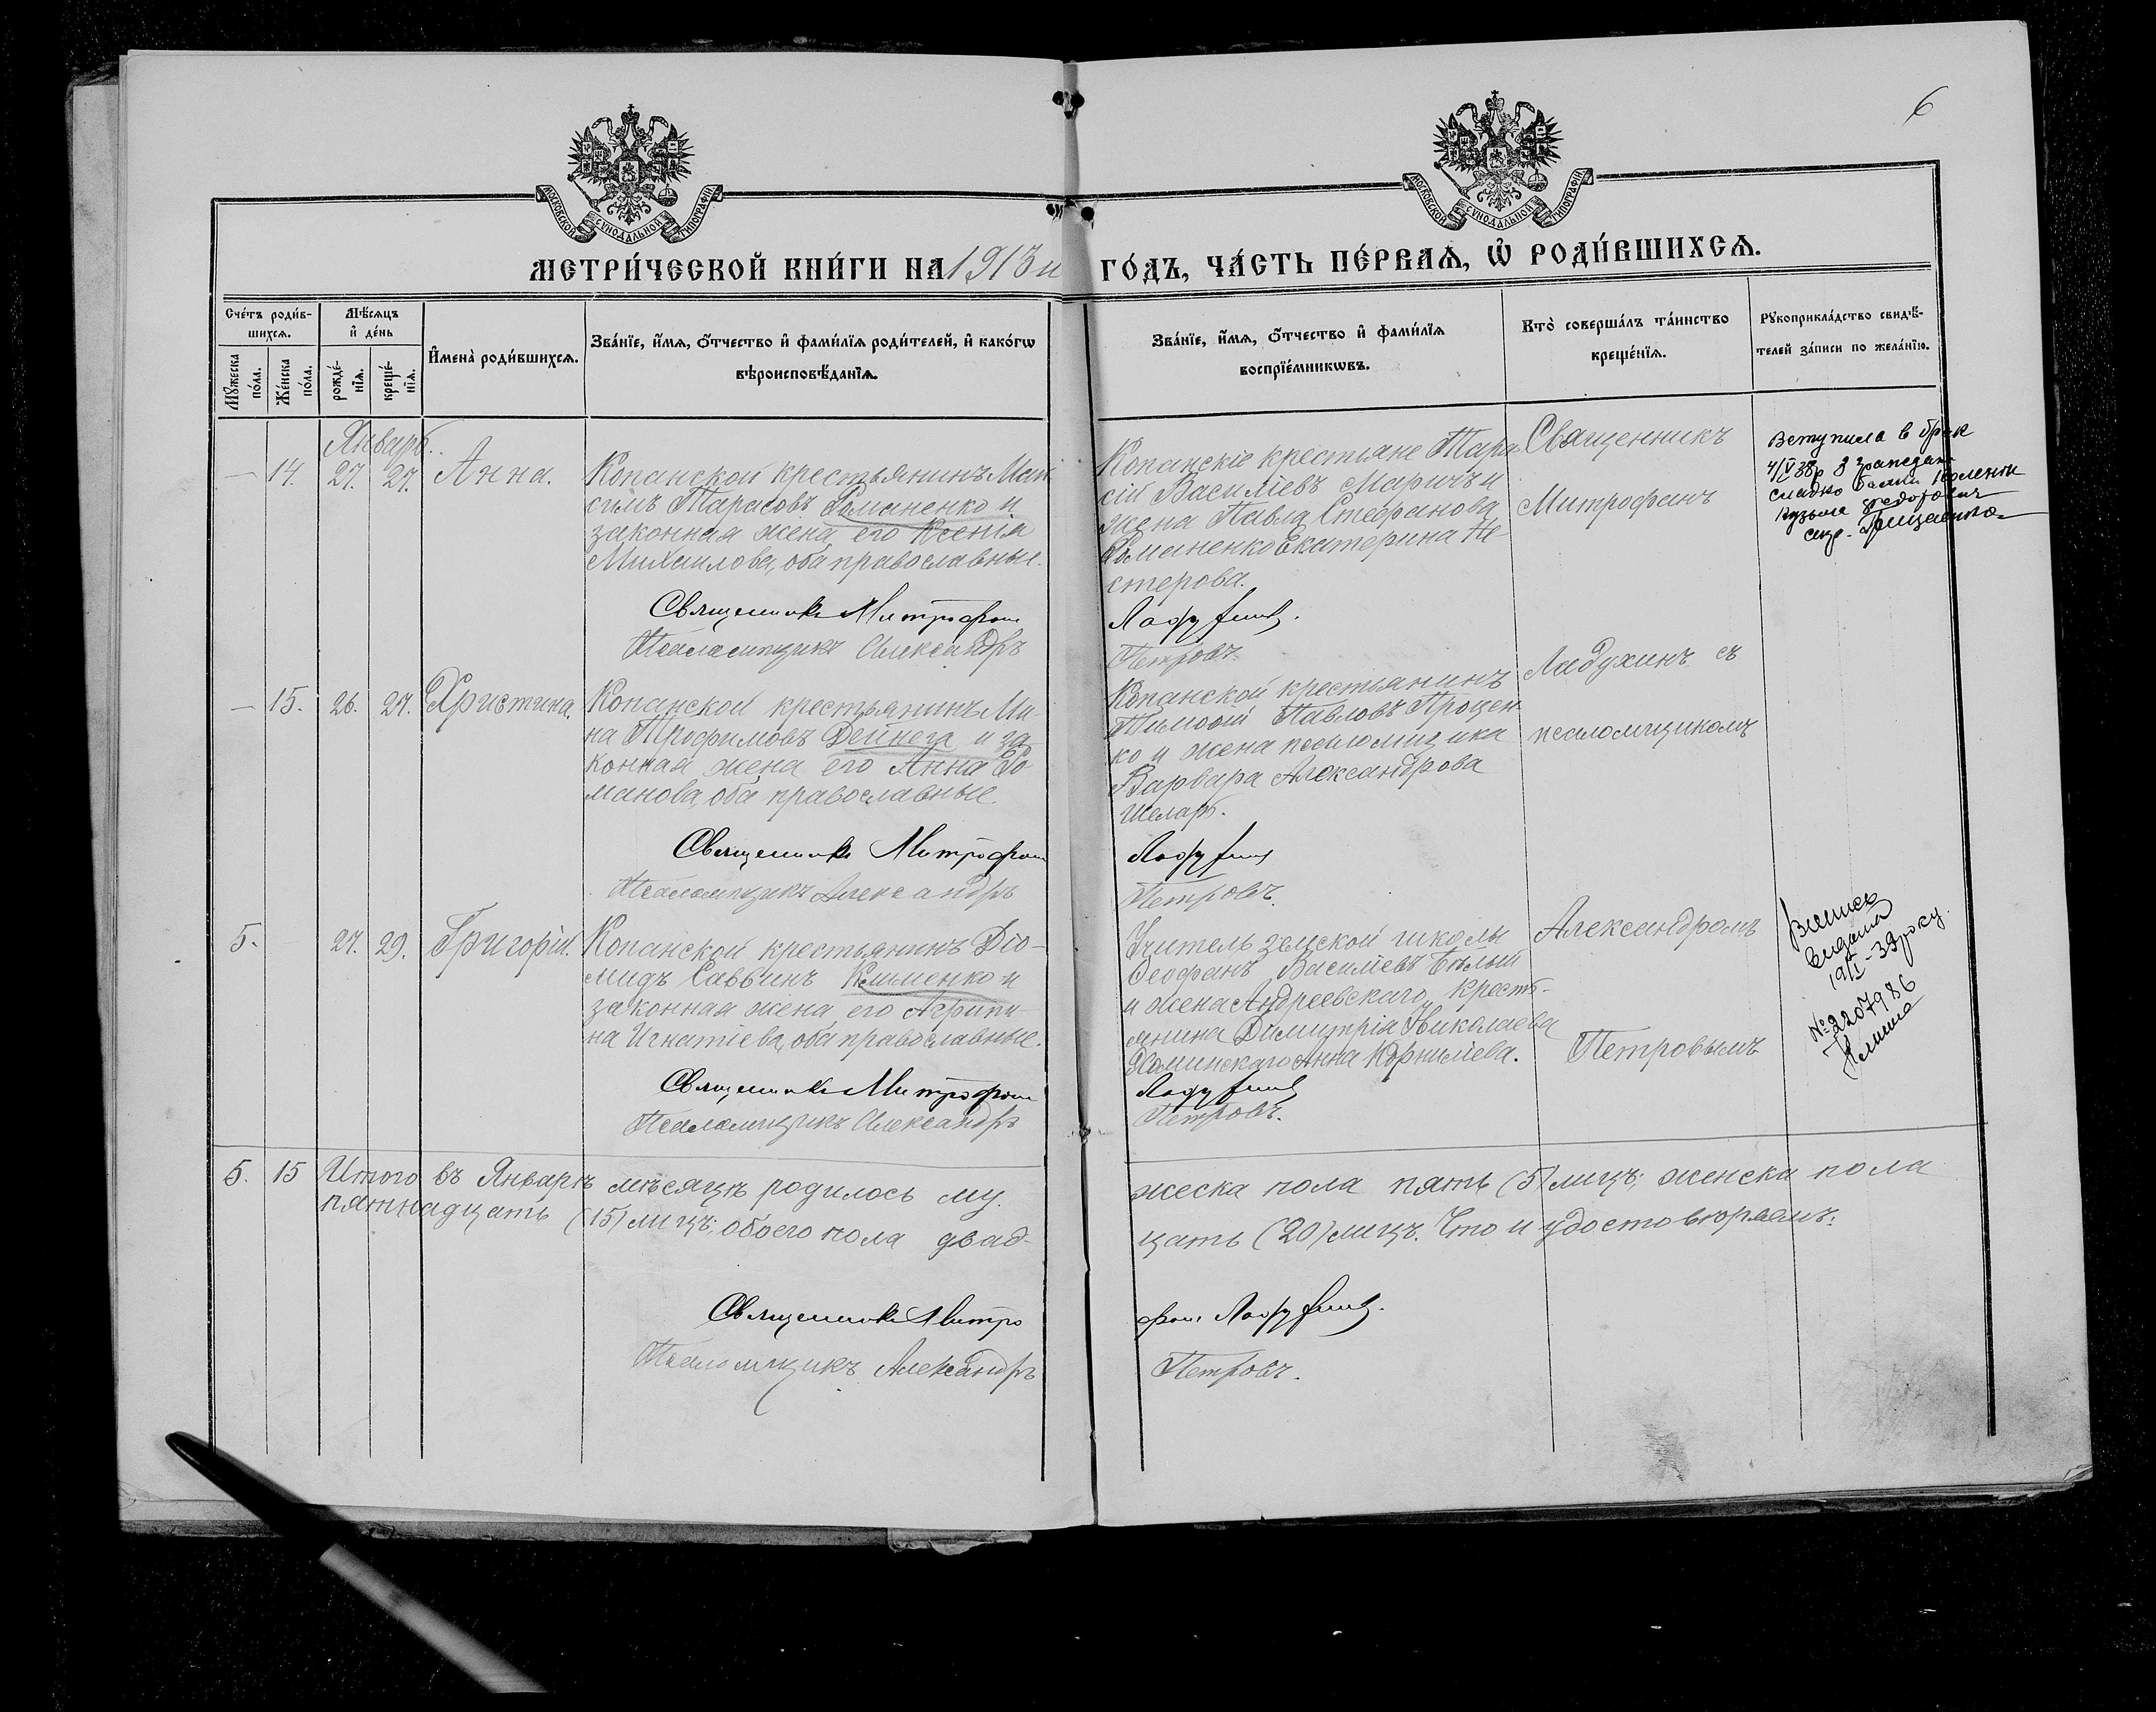 6
МОСКОВСКОЙ СѴНОДАЛЬНОЙ ТИПОГРАФІИ
МОСКОВСКОЙ СѴНОДАЛЬНОЙ ТИПОГРАФІИ
МЕТРИ́ЧЕСКОЙ КНИ́ГИ НА 1913 й ГО́ДЪ, ЧА́СТЬ ПЕ́РВАѦ, Ѡ҆ РОДИ́ВШИХСѦ.
Сче́тъ роди́в-
шихсѧ.
Мꙋжеска
по́ла.
Же́нска
по́ла.
Мѣ́сѧцъ
и҆ де́нь
рожде́-
нїѧ.
креще́-
нїѧ.
И҆мена̀ роди́вшихсѧ.
Зва́нїе, и҆́мѧ, ѻ҆́тчество и҆ фами́лїѧ роди́телей, и҆ како́гѡ
вѣроисповѣ́данїѧ.
Зва́нїе, и҆́мѧ, ѻ҆́тчество и҆ фами́лїѧ
воспрїе́мникѡвъ.
Кто̀ соверша́лъ та́инство
креще́нїѧ.
Рꙋкоприкла́дство свидѣ́-
телей за́писи по жела́нїю.
Январь.
— 14. 27. 27. Анна.
Копанской крестьянинъ Мак
симъ Тарасовъ Романенко и
законная жена его Ксенія
Михаилова, оба православные.
Священникъ Митрофан
Псаломщикъ Александръ
Копанскіе крестьяне Тара
сій Василіевъ Маричъ и
жена Павла Стефанова
Романенко Екатерина Не-
стерова.
Ладухинъ.
Петровъ.
Священникъ
Митрофанъ
Вступила в брак
4/V 38р з граждан
Кузьма Федорович
секр. Грищенко
— 15. 26. 27. Христина.
Копанской крестьянинъ Ми-
на Трофимовъ Дейнега и за
конная жена его Анна Ро
манова, оба православные.
Священникъ Митрофан
Псаломщикъ Александръ
Копанской крестьянинъ
Тимофій Павловъ Процен
ко и жена псаломщика
Варвара Александрова
Шеларь.
Ладухинъ
Петровъ.
Ладухинъ съ
псаломщикомъ
5. 27. 29. Григорій.
Копанской крестьянинъ Діо-
мидъ Саввинъ Клименко и
законная жена его Агрипи-
на Игнатіева, оба православные.
Священникъ Митрофан
Псаломщикъ Александръ
Учитель земской школы
Ѳеофанъ Василіевъ Бѣлый
и жена Андреевскаго кресть-
янина Димитрія Николаева
Хоминскаго Анна Корниліева.
Ладухинъ
Петровъ.
Александромъ
Петровымъ
Випись
видана
19/I-39 року
№ 2207986
5. 15 Итого въ Январѣ мѣсяцѣ родилось му.
пятнадцать (15) лицъ; обоего пола двад-
жеска пола пять (5) лицъ; женска пола
цать (20) лицъ. Что и удостовѣряемъ:
Священникъ Митро
Псаломщикъ Александръ
фан Ладухинъ.
Петровъ.